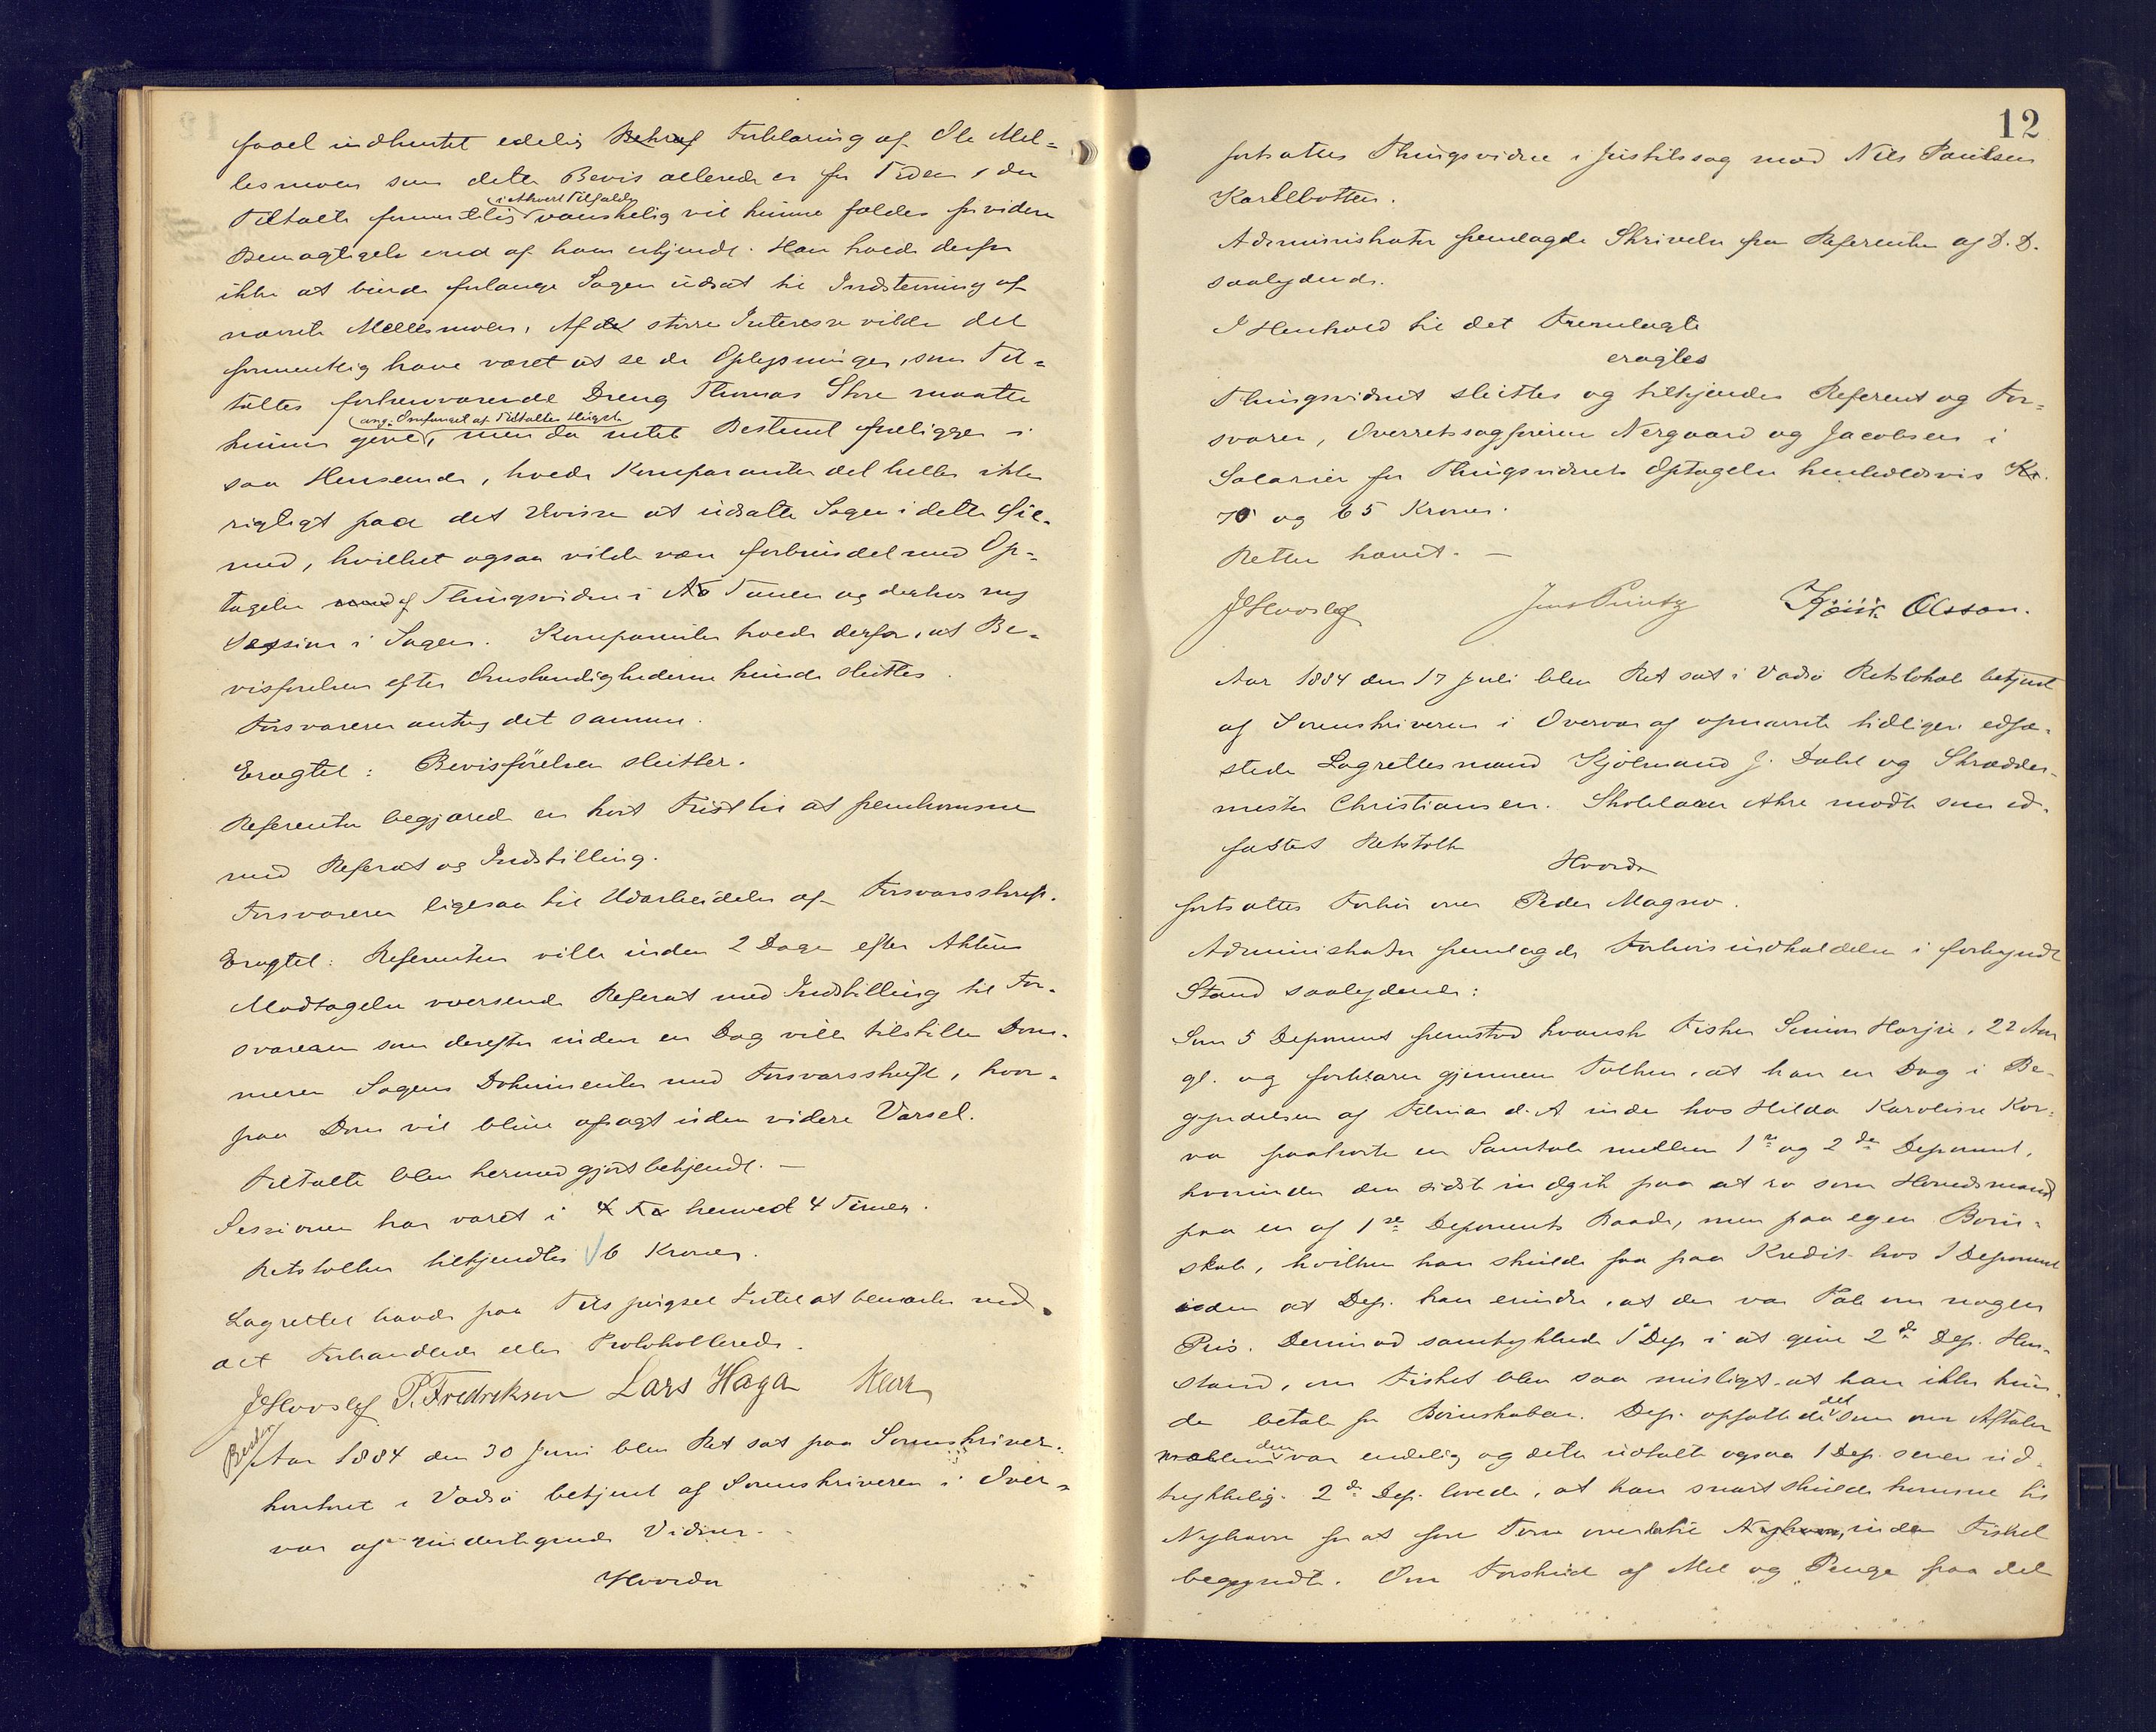 faael indhentet edelig Forklaring af Ole Mel-
lesmoen som dette Bevis allerede er for Tiden, da
i ethvert Tilfælde
Tiltalte formentlig vanskelig vil kunne fældes for videre
Bemægtigelse end af ham erkjendt. Han troede derfor
ikke at burde forlange Sagen udsat til Indstevning af
nævnte Mellesmoen. Af større Interesse vilde det
formentlig have været at se de Oplysninger, som Til-
taltes forhenværende Dreng Thomas Store maatte
ang. Omfanget af Tiltaltes
kunne give, men da intet Bestemt foreligger i
saa Henseende, troede Komparenten det heller ikke
rigtigt paa det Uvisse at udsætte Sagen i dette Øie-
med, hvilket ogsaa vilde være forbundet med Op-
tagelse af Thingsvidne i Tanen og derhos ny
Session i Sagen. Komparenten troede derfor, at Be-
visførelsen efter Omstændighederne kunde sluttes.
Forsvareren antog det samme.
Eragtet: Bevisførelsen slutter.
Referenten begjærede en kort Frist til at fremkomme
med Referat og Indstilling.
Forsvareren ligesaa til Udarbeidelse af Forsvarsskrift.
Eragtet: Referenten ville inden 2 Dage efter Aktens
Modtagelse oversende Referat med Indstilling til For-
svareren som derefter inden en Dag ville tilstille Dom-
meren Sagens Dokumenter med Forsvarsskrift, hvor-
paa Dom vil blive afsagt uden videre Varsel.
Tiltalte blev hermed gjort bekjendt. —
Sessionen har varet i henved 4 Timer.
Retstolken tilkjendtes 6 Kroner.
Lagrettet havde paa Tilspørgsel Intet at bemærke ved
det Forhandlede eller Protokollerede.
JHovslef P. Fredriksen Lars Haga
Aar 1884 den 30 Juni blev Ret sat paa Sorenskriver-
kontoret i Vadsø betjent af Sorenskriveren i Over-
vær af undertegnede Vidner.
Hvorda
12
fortsattes Thingsvidne i Justitssag mod Nils Paulsen
Karlbotten.
Administrator fremlagde Skrivelse fra Referenten af D. D.
saalydende.
I Henhold til det Fremlagte
eragtes
Thingsvidnet sluttes og tilkjendes Referent og For-
svarer, Overretssagførerne Nergaard og Jacobsen i
Salarier for Thingsvidnets Optagelse henholdsvis Kr.
70 og 65 Kroner.
Retten hævet. —
JHovslef Jens Printz Olsson.
Aar 1884 den 17 Juli blev Ret sat i Vadsø Retslokale betjent
af Sorenskriveren i Overvær af opnævnte tidligere edfæ-
stede Lagrettesmænd Kjøbmand J. Dahl og Skrædder-
mester Christiansen. Skolelærer Akre mødte som ed-
fæstet Retstolk
Hvorda
fortsattes Forhør over Peder Magno.
Administrator fremlagde Forhørsindkaldelse i forkyndt
Stand saalydende:
Som 5 Deponent fremstod kvænsk Fisker Simon Harju, 22 Aar
gl. og forklarer gjennem Tolken, at han en Dag i Be-
gyndelsen af Februar d. A inde hos Hilda Karoline Kor-
va paahørte en Samtale mellem 1ste og 2den Deponent,
hvorunder den sidste indgik paa at ro som Høvedsmand
paa en af 1ste Deponents Baade, men paa egen Børn-
skab, hvilken han skulde faa paa Kredit hos 1 Deponent
uden at Dep. kan erindre, at der var Tale om nogen
Pris. Derimod samtykkede 1 Dep i at give 2den Dep. Hen-
stand, om Fisket blev saa misligt at han ikke kun-
de betale for Børnskaben. Dep. opfattede det som om Aftalen
mellem dem var endelig og dette udtalte ogsaa 1 Dep. senere ud-
trykkelig. 2den Dep. lovede, at han snart skulde komme til
Nyhavn for at føre Tøm over inden Fisket
begyndte. Om Forskud af Mel og Penge paa det